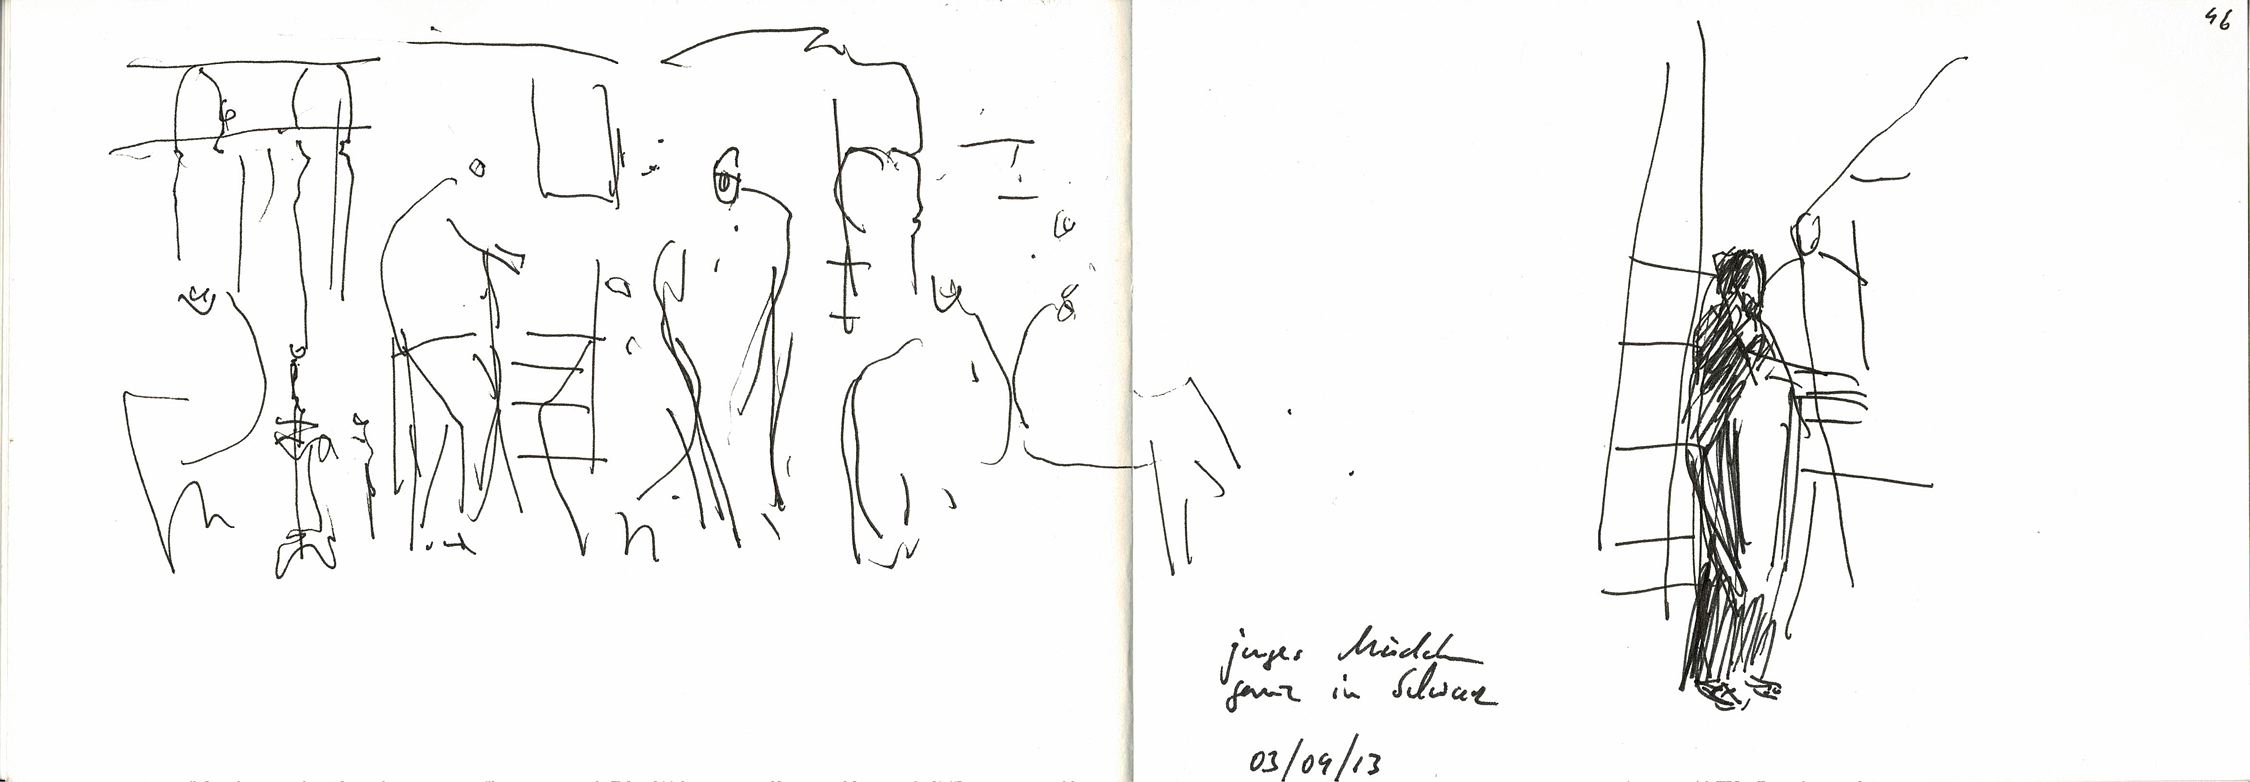 46
junges Mädchen
ganz in Schwarz
03/09/13